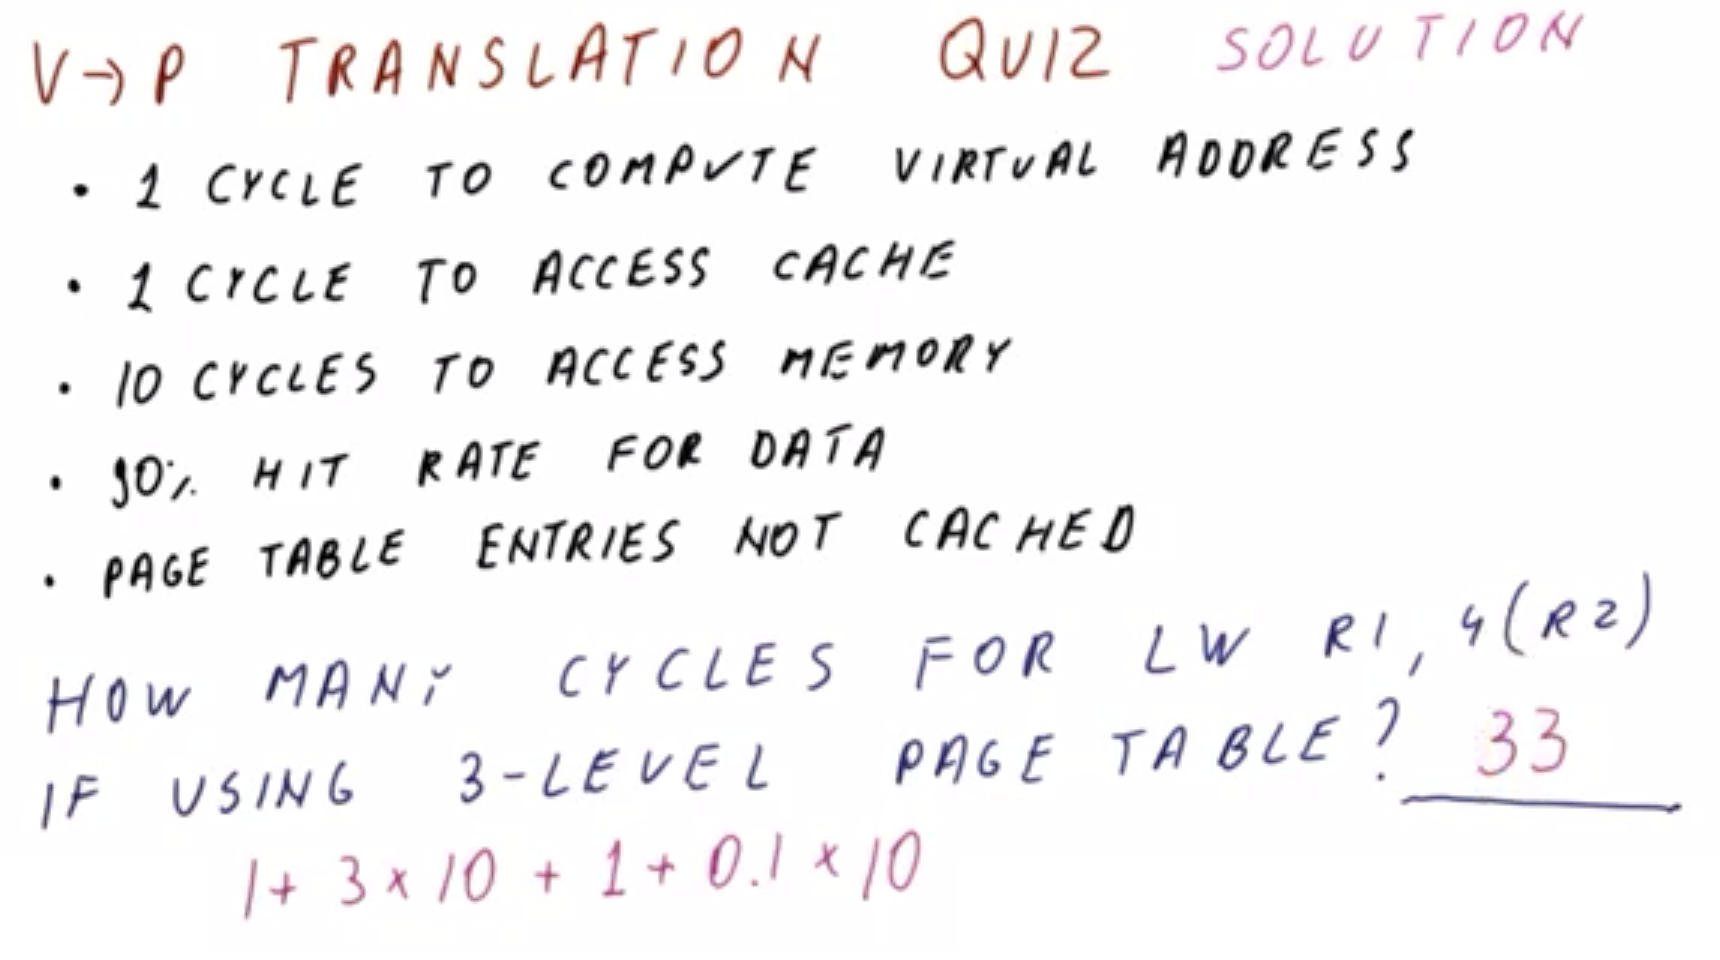 V→P TRANSLATION QUIZ SOLUTION
• 1 CYCLE TO COMPUTE VIRTUAL ADDRESS
• 1 CYCLE TO ACCESS CACHE
• 10 CYCLES TO ACCESS MEMORY
• 90% HIT RATE FOR DATA
• PAGE TABLE ENTRIES NOT CACHED
HOW MANY CYCLES FOR LW R1, 4(R2)
IF USING 3-LEVEL PAGE TABLE? 33
1+ 3×10 + 1 + 0.1×10